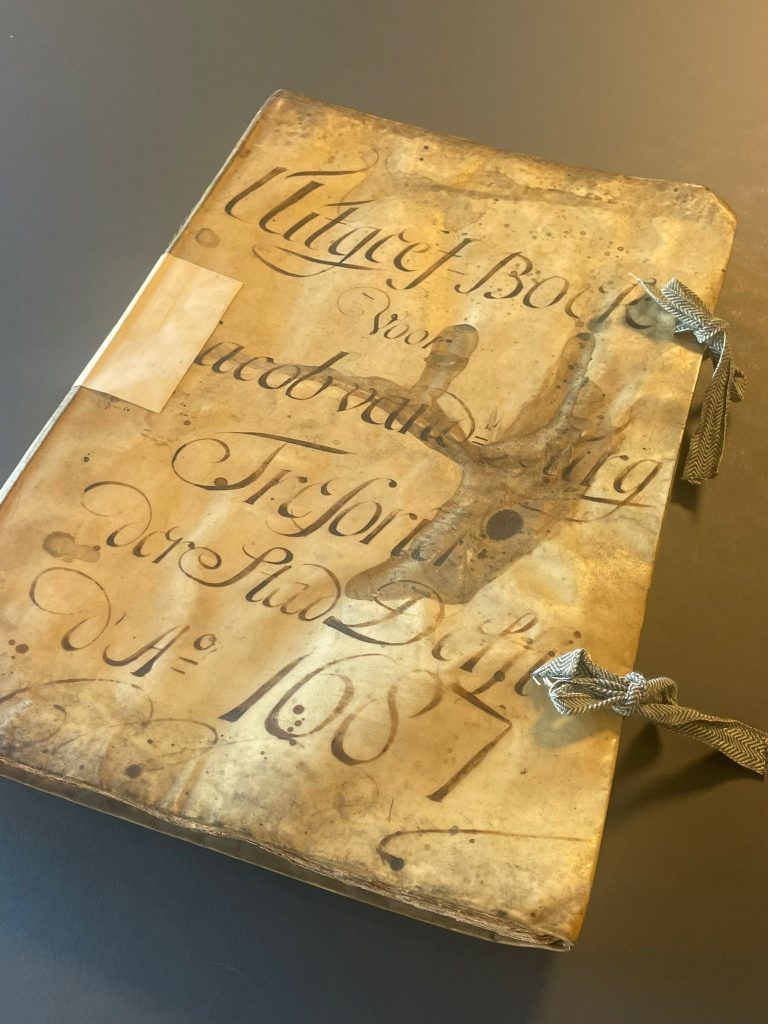 Uitgeef-Boek
Voor
Jacob vand=
Tresorier
der Stad Delft
d' Aº= 1687